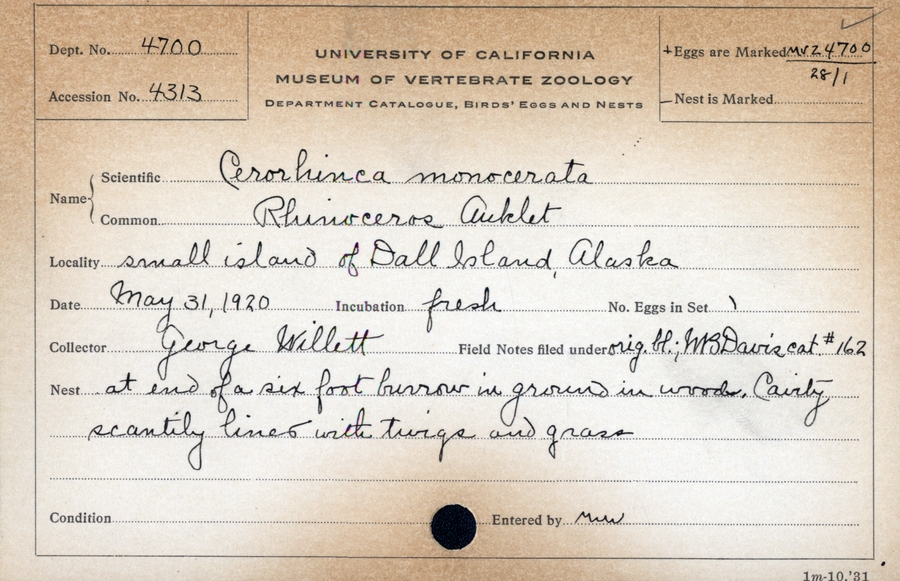 Dept. No. 4700
Accession No. 4313
UNIVERSITY OF CALIFORNIA
MUSEUM OF VERTEBRATE ZOOLOGY
DEPARTMENT CATALOGUE, BIRDS' EGGS AND NESTS
+Eggs are Marked MVZ 4700
28/1
–Nest is Marked
Name
Scientific Cerorhinca monocerata
Common Rhinoceros Auklet
Locality small island of Dall Island, Alaska
Date May 31, 1920 Incubation fresh No. Eggs in Set 1
Collector George Willett Field Notes filed under orig. bl.; WBDavis cat. #162
Nest at end of a six foot burrow in ground in woods. Cavity
scantily lined with twigs and grass
Condition Entered by
1m-10,'31